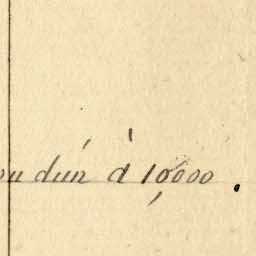 ou d'un à 10,000.